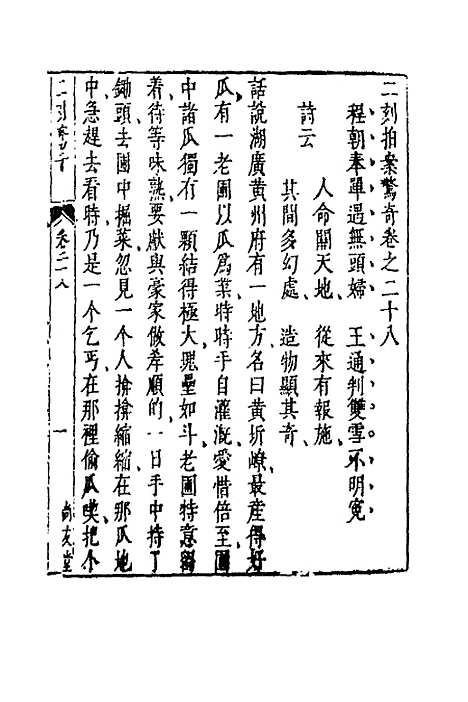 二刻拍案驚奇卷之二十八
程朝奉單遇無頭婦　王通判雙雪不明寃
詩云
人命關天地　從來有報施
其間多幻處　造物顯其奇
話說湖廣黃州府有一地方名曰黃圻嶛最産得好
瓜有一老圃以瓜爲業時時手自灌漑愛惜倍至圃
中諸瓜獨有一顆結得極大塊壘如斗老圃特意留
着待等味熟要獻與豪家做孝順的一日手中持了
鋤頭去園中掘菜忽見一個人掩掩縮縮在那瓜地
中急趕去看時乃是一个乞丐在那裡偷瓜喫把个
二刻驚奇　卷二十八　一　尚友堂